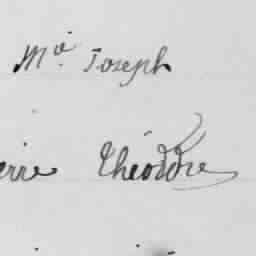 Mᵃ. Joseph
erre Théodore